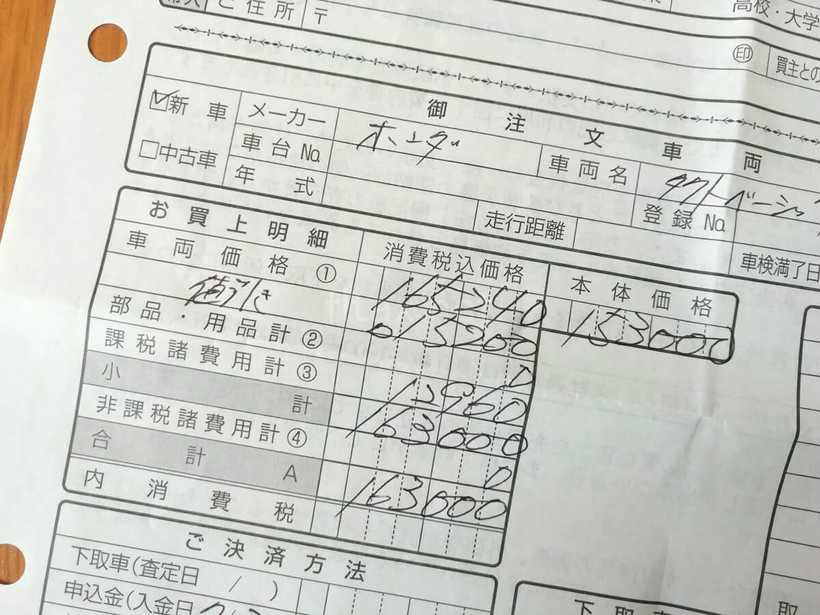 ご住所 〒
高校・大学
印 買主との
御注文車両
☑新車 メーカー ホンダ 車両名 タクトベーシック
□中古車 車台No.
年式 走行距離 登録No.
車検満了日
お買上明細 消費税込価格 本体価格
車両価格① 165240 153000
値引き 015200
部品・用品計② 0
課税諸費用計③ 12960
小計 163000
非課税諸費用計④ 0
合計A 163000
内消費税
ご決済方法
下取車(査定日 / )
申込金(入金日